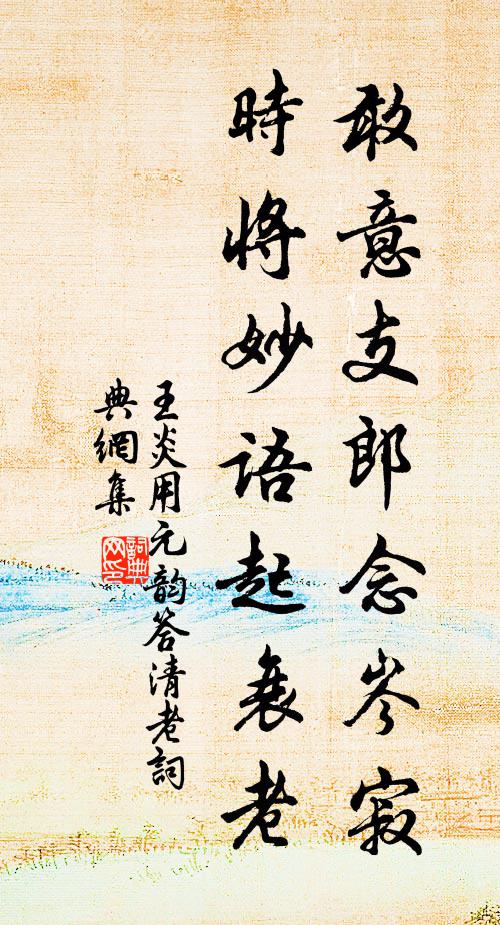 敢意支郎念岑寂
時將妙語起衰老
王炎用元韵答清老詞
典網集
詞典網印